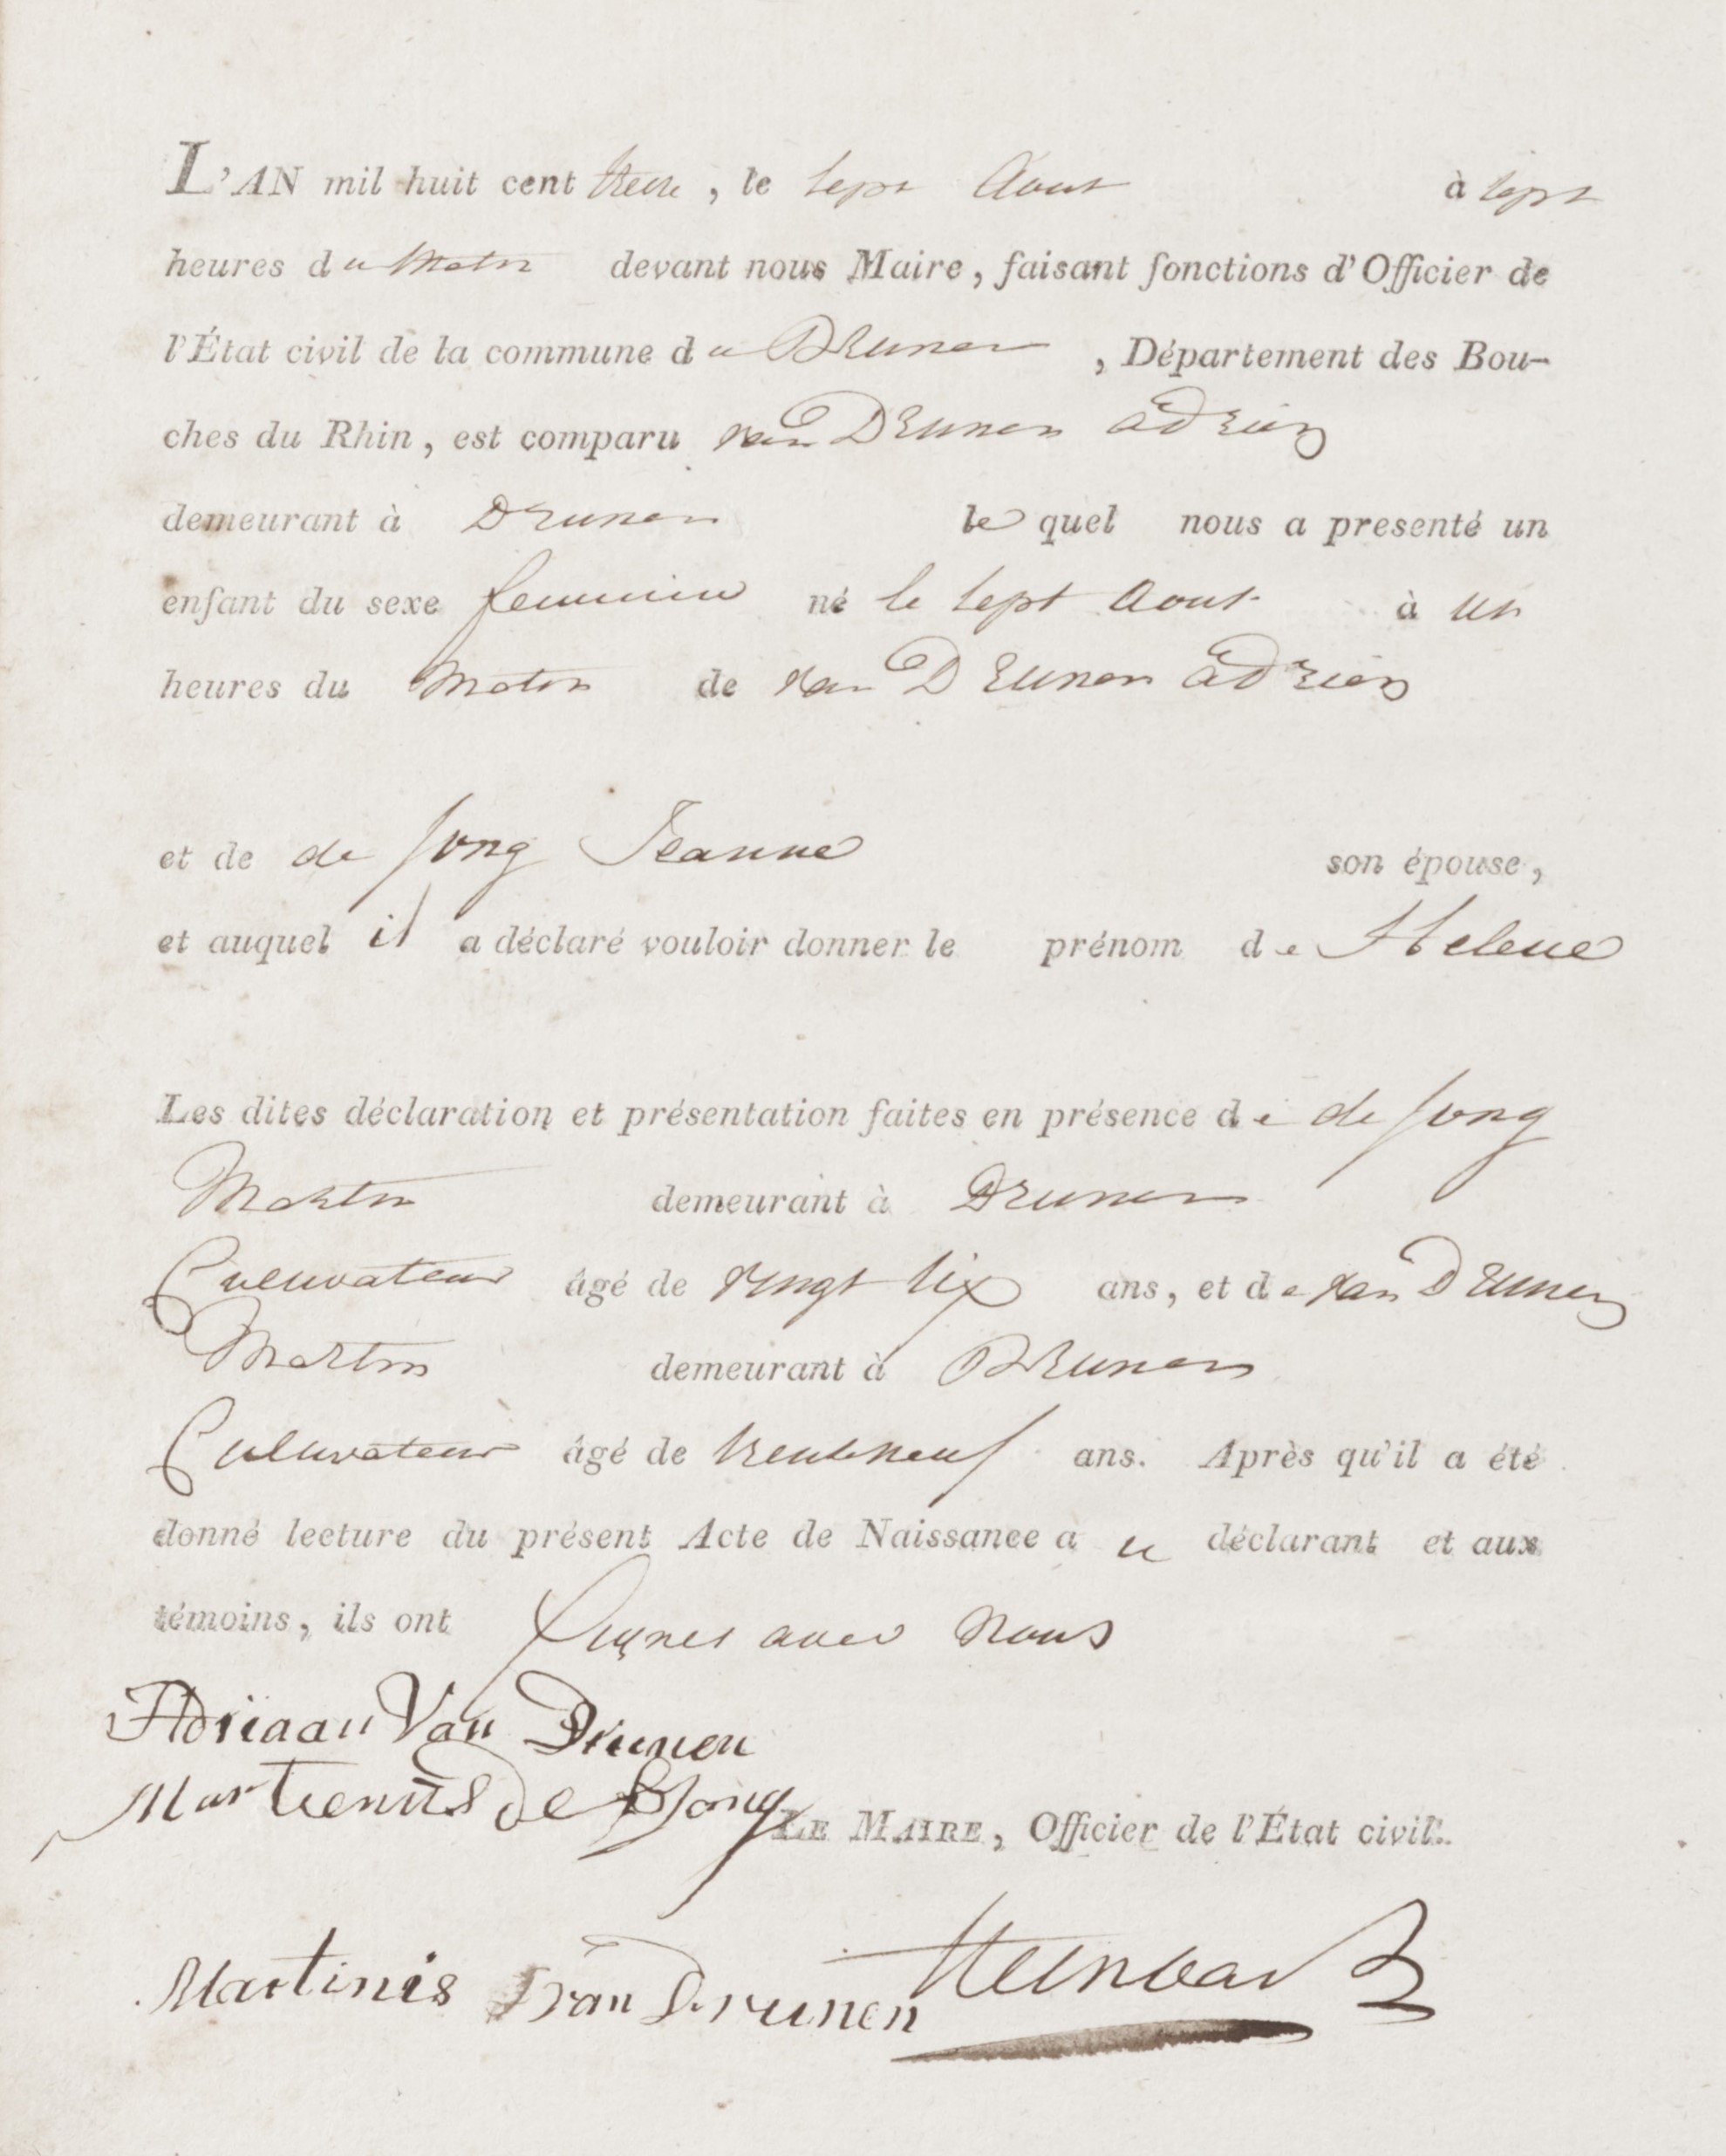 L'AN mil huit cent treize, le sept Aout à sept
heures du Matin devant nous Maire, faisant fonctions d'Officier de
l'État civil de la commune de Drunen, Département des Bou-
ches du Rhin, est comparu van Drunen adrien
demeurant à Drunen le quel nous a presenté un
enfant du sexe feminin né le sept Aout à un
heures du Matin de van Drunen adrien
et de de Jong Jeanne son épouse,
et auquel il a déclaré vouloir donner le prénom de Helene
Les dites déclaration et présentation faites en présence de de Jong
Martin demeurant à Drunen
Cultivateur âgé de vingt six ans, et de van Drunen
Martin demeurant à Drunen
Cultivateur âgé de trente neuf ans. Après qu'il a été
donné lecture du présent Acte de Naissance au déclarant et aux
témoins, ils ont signés avec nous
Adriaan Van Drunen
Martienus de Jong
LE MAIRE, Officier de l'État civil.
Martinis van Drunen